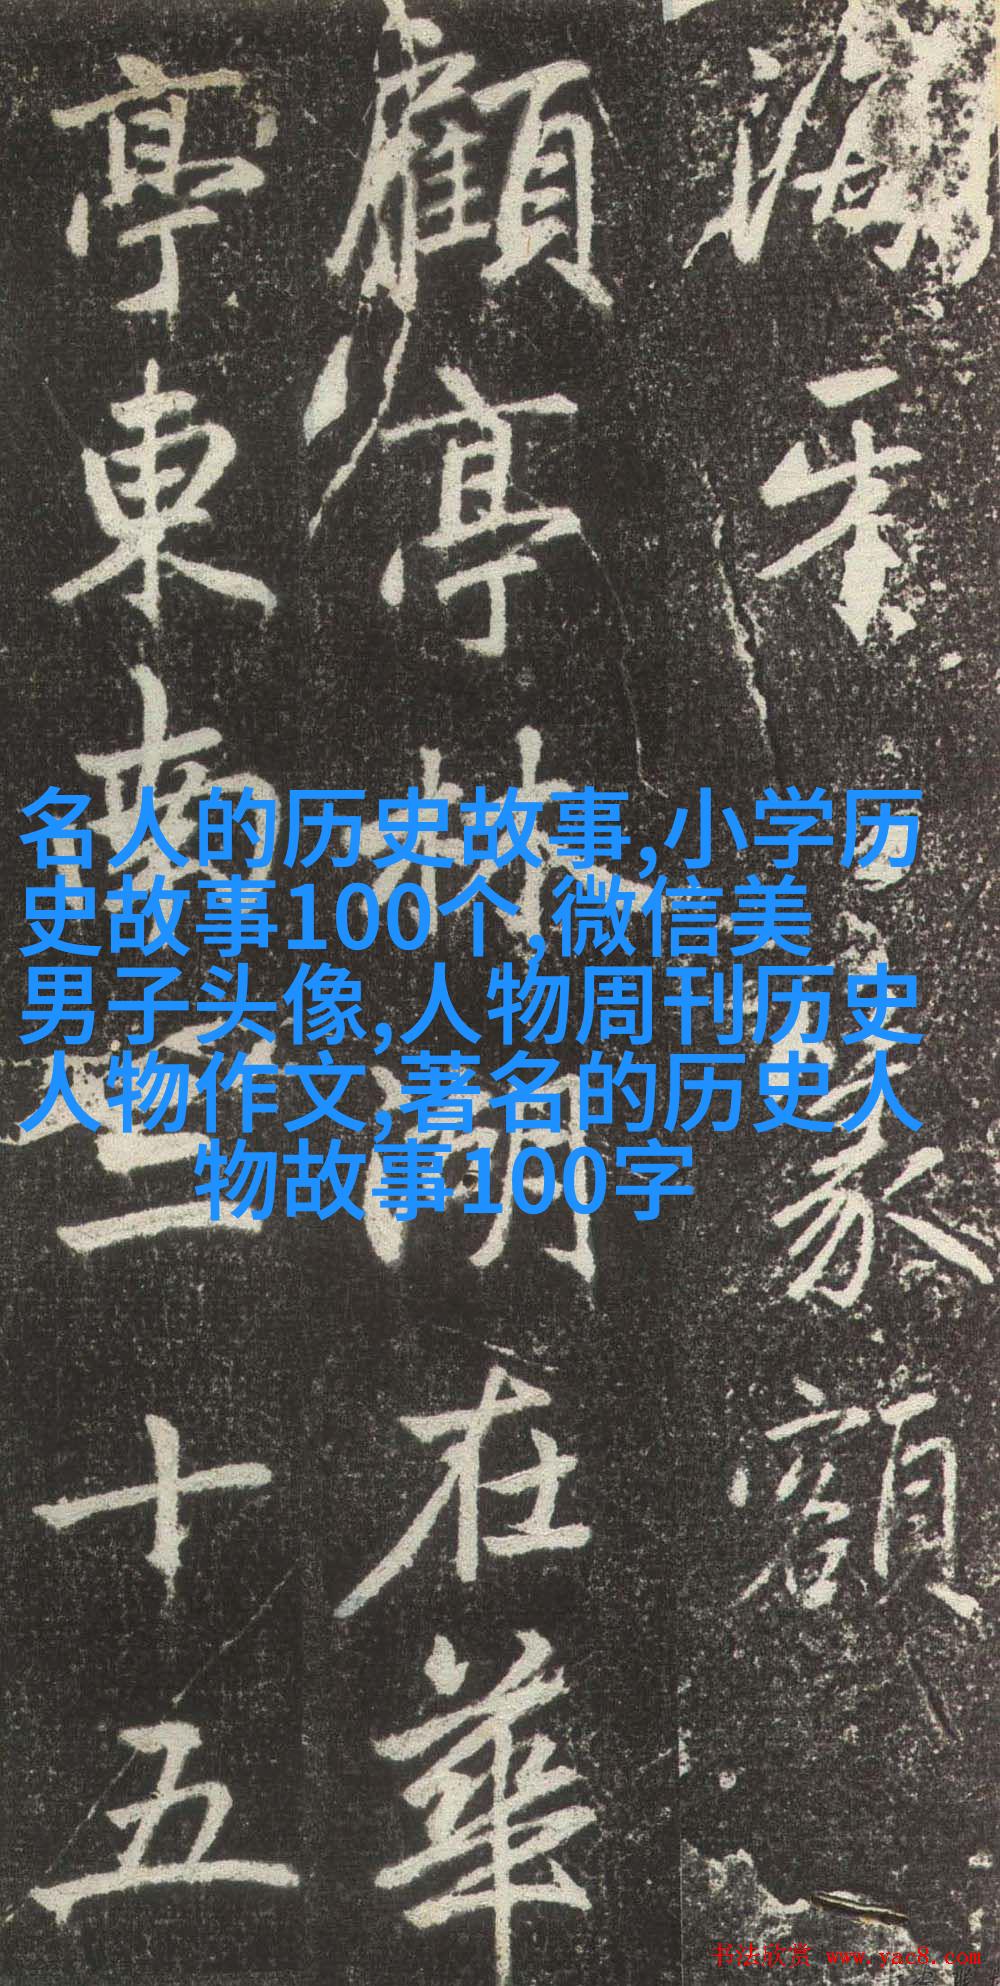 篆額
顧亭林湖在華
亭東南三十五
名人的历史故事,小学历
史故事100个,微信美
男子头像,人物周刊历史
人物作文,著名的历史人
物故事100字
书法欣赏 www.yac8.com